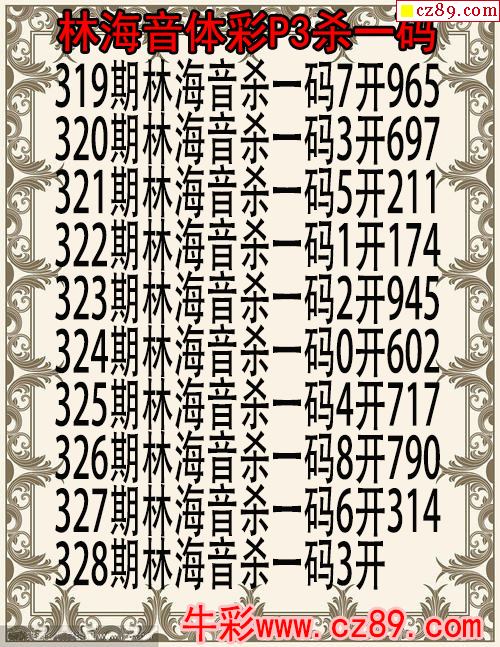 cz89.com
林海音体彩P3杀一码
319期林海音杀一码7开965
320期林海音杀一码3开697
321期林海音杀一码5开211
322期林海音杀一码1开174
323期林海音杀一码2开945
324期林海音杀一码0开602
325期林海音杀一码4开717
326期林海音杀一码8开790
327期林海音杀一码6开314
328期林海音杀一码3开
牛彩www.cz89.com